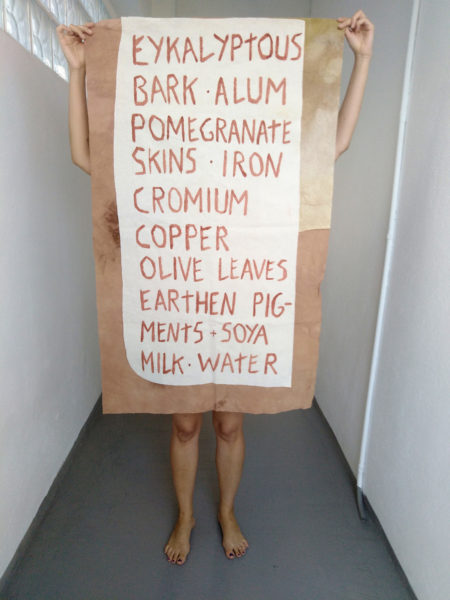 EYKALYPTOUS
BARK · ALUM
POMEGRANATE
SKINS · IRON
CROMIUM
COPPER
OLIVE LEAVES
EARTHEN PIG-
MENTS + SOYA
MILK · WATER